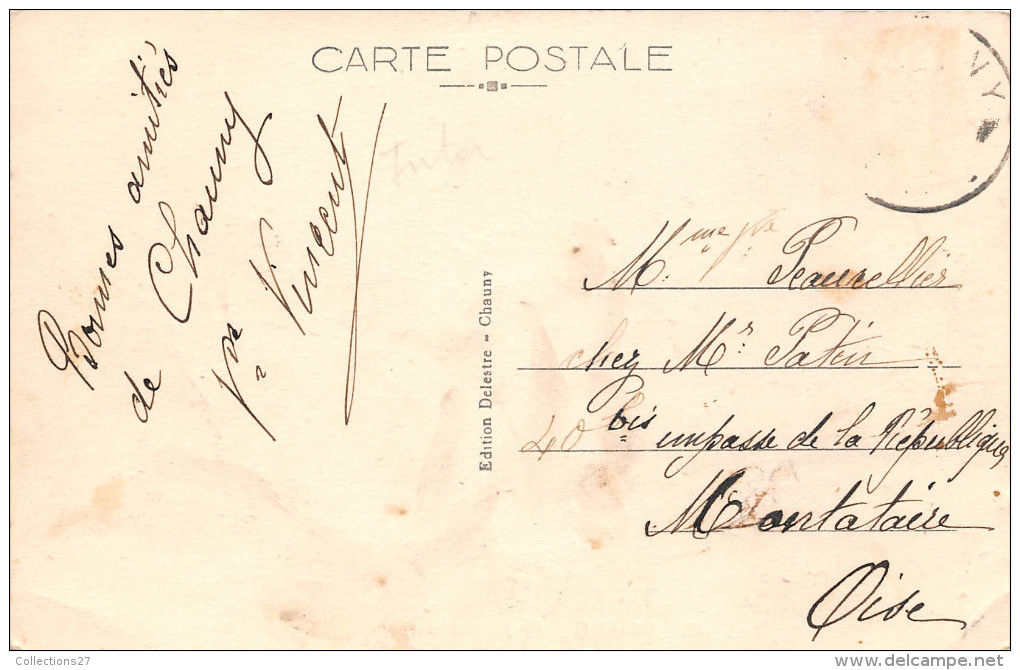 CARTE POSTALE
Bonnes amitiés
de Chauny
Vve Vincent
Edition Delestre - Chauny
NY
Mme Vve Peaucellier
chez Mr Patin
40 bis impasse de la République
Montataire
Oise
Collections27
www.delcampe.net